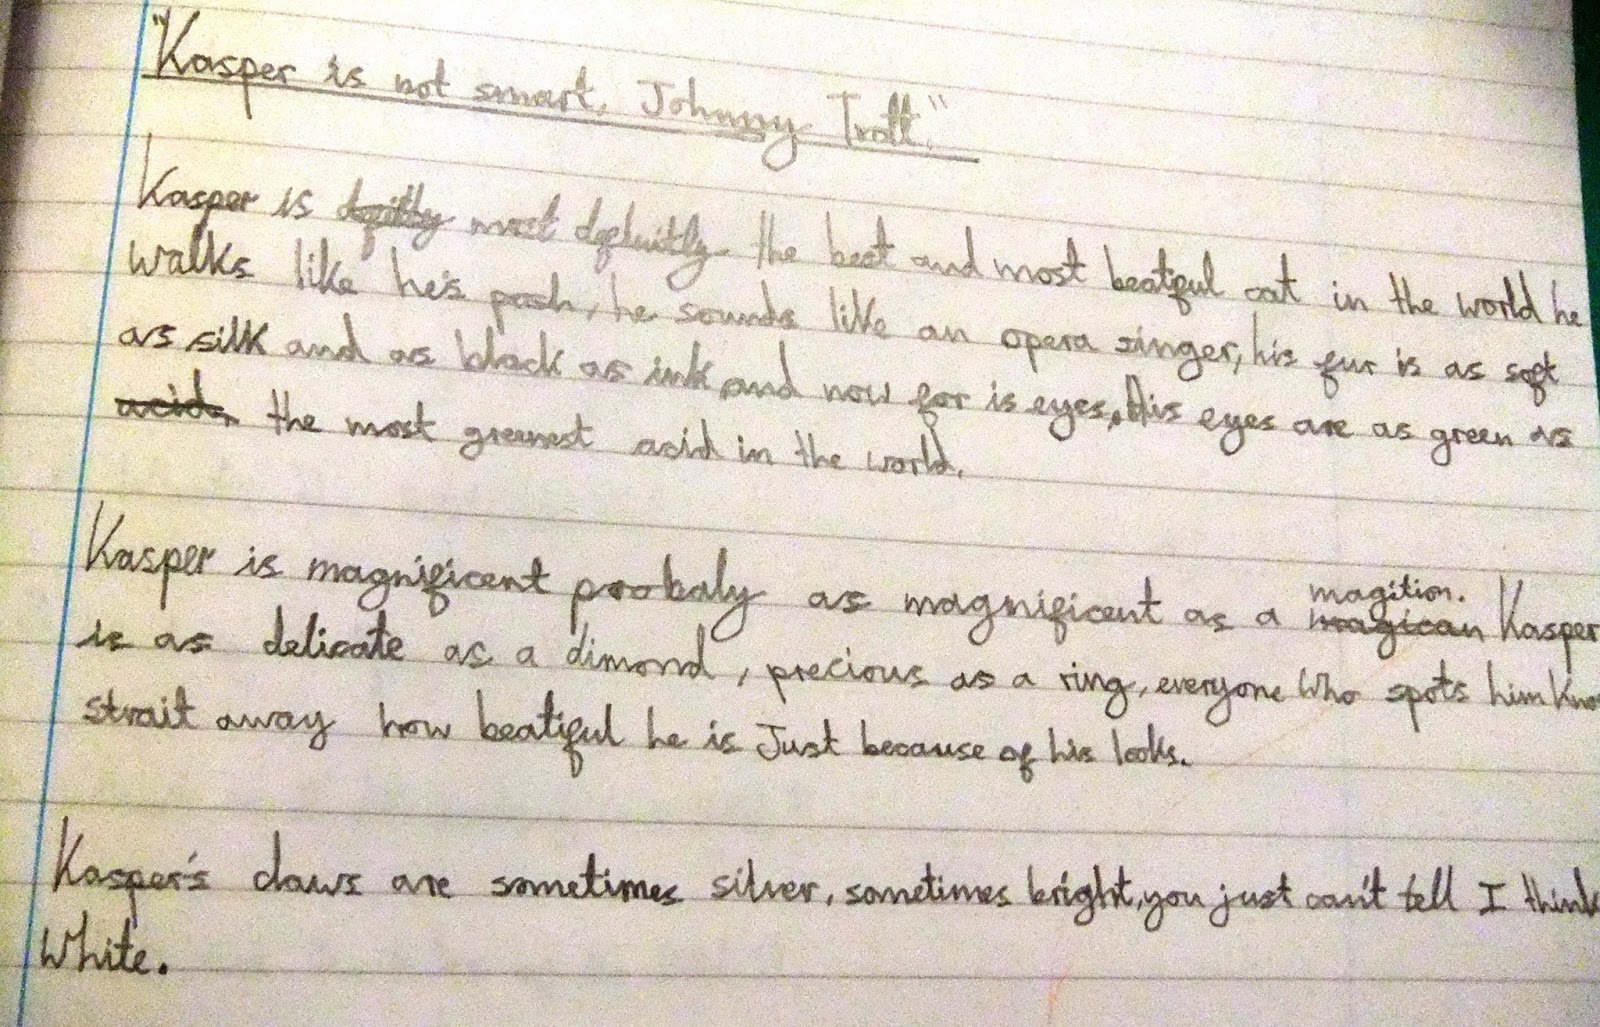 "Kasper is not smart, Johnny Trott."
Kasper is most defiuitly the best and most beatiful cat in the world he
walks like he's posh, he sounds like an opera singer, his fur is as soft
as silk and as black as ink and now for is eyes. His eyes are as green as
acid, the most greenest acid in the world.
Kasper is magnificent probaly as magnificent as a magition. Kasper
is as delicate as a dimond, precious as a ring, everyone who spots him
strait away how beatiful he is Just because of his looks.
Kasper's claws are sometimes silver, sometimes bright, you just can't tell I think
White.